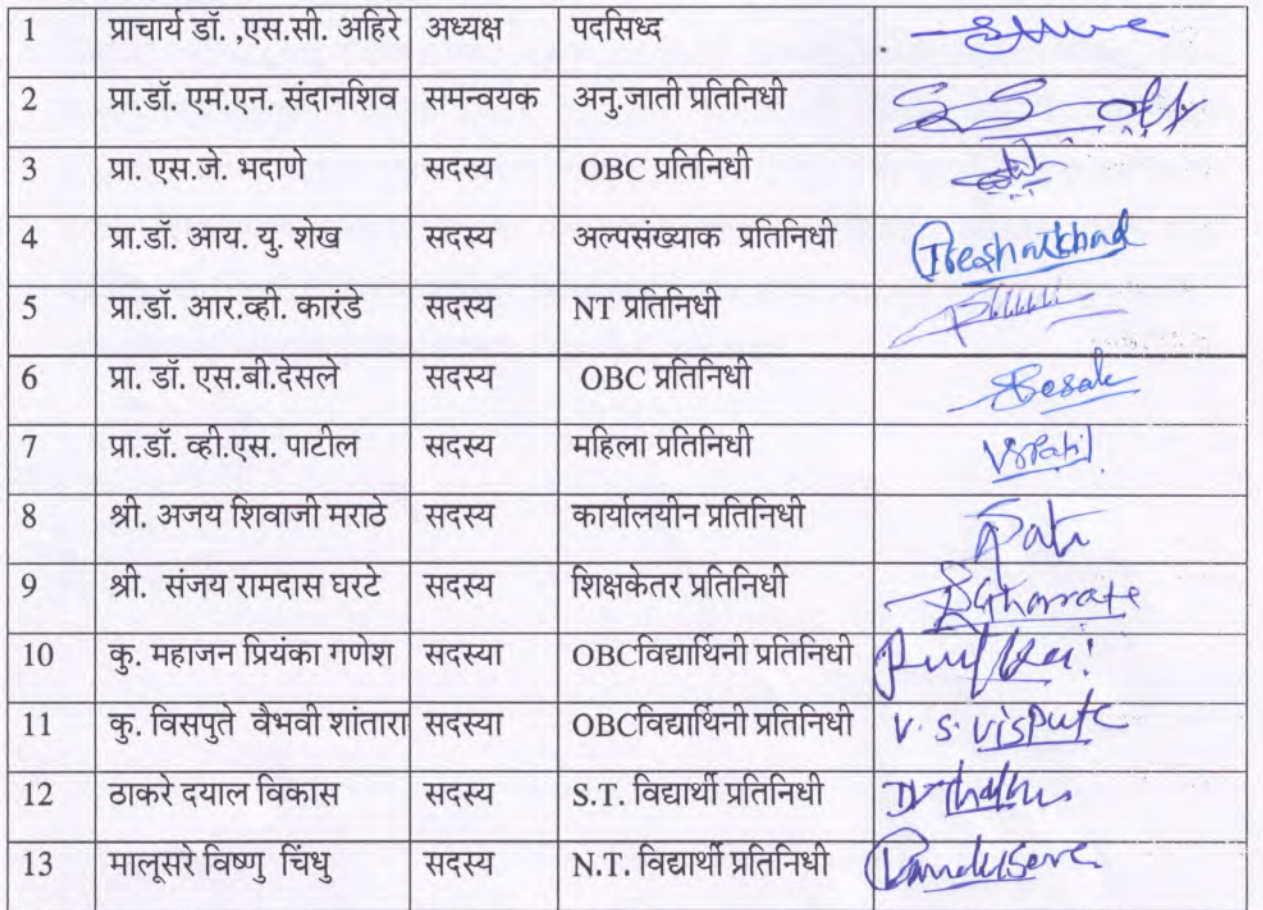 1 प्राचार्य डॉ. ,एस.सी. अहिरे अध्यक्ष पदसिध्द
2 प्रा.डॉ. एम.एन. संदानशिव समन्वयक अनु.जाती प्रतिनिधी
3 प्रा. एस.जे. भदाणे सदस्य OBC प्रतिनिधी
4 प्रा.डॉ. आय. यु. शेख सदस्य अल्पसंख्याक प्रतिनिधी
5 प्रा.डॉ. आर.व्ही. कारंडे सदस्य NT प्रतिनिधी
6 प्रा. डॉ. एस.बी.देसले सदस्य OBC प्रतिनिधी
7 प्रा.डॉ. व्ही.एस. पाटील सदस्य महिला प्रतिनिधी VSPatil
8 श्री. अजय शिवाजी मराठे सदस्य कार्यालयीन प्रतिनिधी
9 श्री. संजय रामदास घरटे सदस्य शिक्षकेतर प्रतिनिधी
10 कु. महाजन प्रियंका गणेश सदस्या OBCविद्यार्थिनी प्रतिनिधी
11 कु. विसपुते वैभवी शांतारा सदस्या OBCविद्यार्थिनी प्रतिनिधी V. S. Vispute
12 ठाकरे दयाल विकास सदस्य S.T. विद्यार्थी प्रतिनिधी
13 मालूसरे विष्णु चिंधु सदस्य N.T. विद्यार्थी प्रतिनिधी